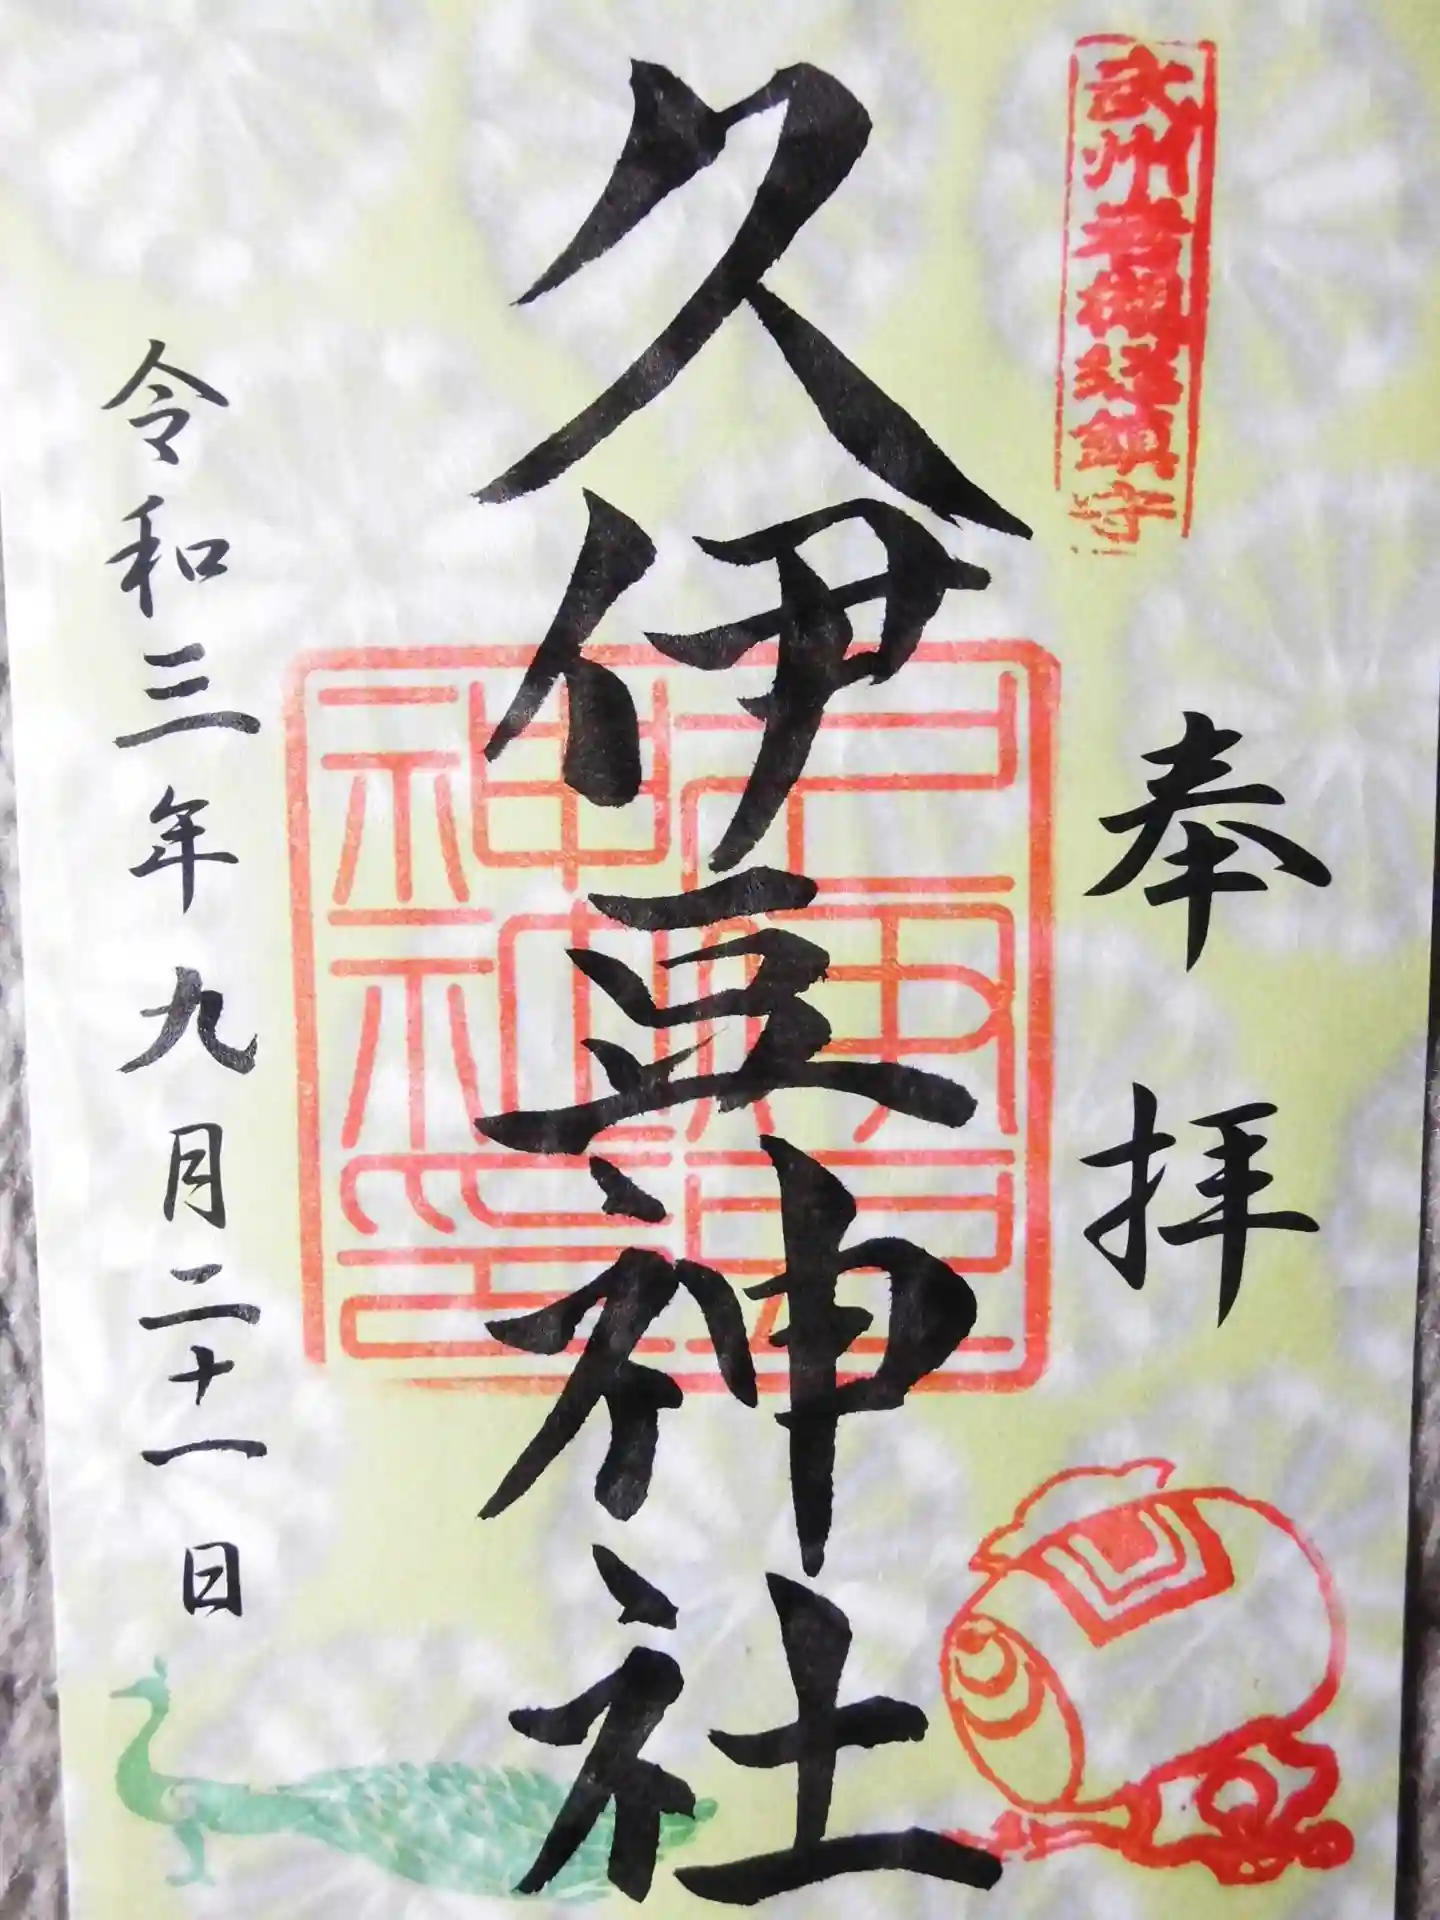 武州岩槻総鎮守
奉拝
久伊豆神社
久伊豆神社印
令和三年九月二十一日